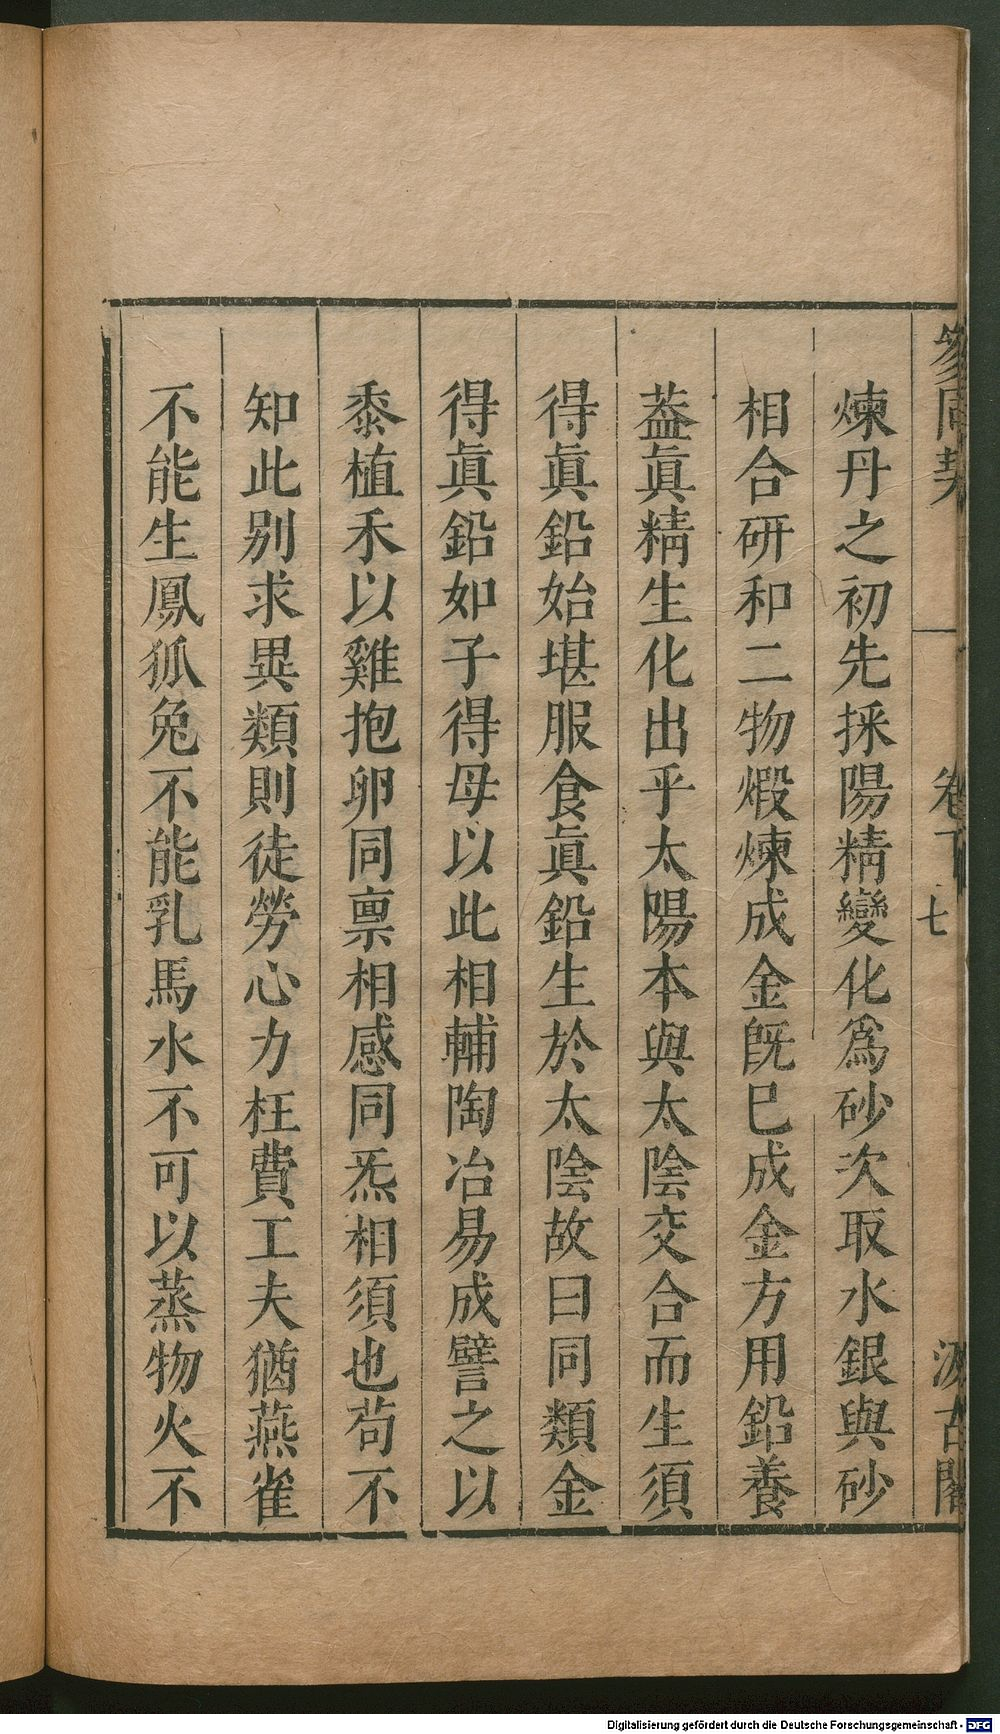 參同契 卷下 七 汲古閣
煉丹之初先採陽精變化爲砂次取水銀與砂
相合研和二物煅煉成金旣巳成金方用鉛養
葢眞精生化出乎太陽本與太陰交合而生須
得眞鉛始堪服食眞鉛生於太陰故曰同類金
得眞鉛如子得母以此相輔陶冶易成譬之以
黍植禾以雞抱卵同稟相感同炁相須也苟不
知此别求異類則徒勞心力枉費工夫猶燕雀
不能生鳳狐兔不能乳馬水不可以蒸物火不
Digitalisierung gefördert durch die Deutsche Forschungsgemeinschaft - DFG